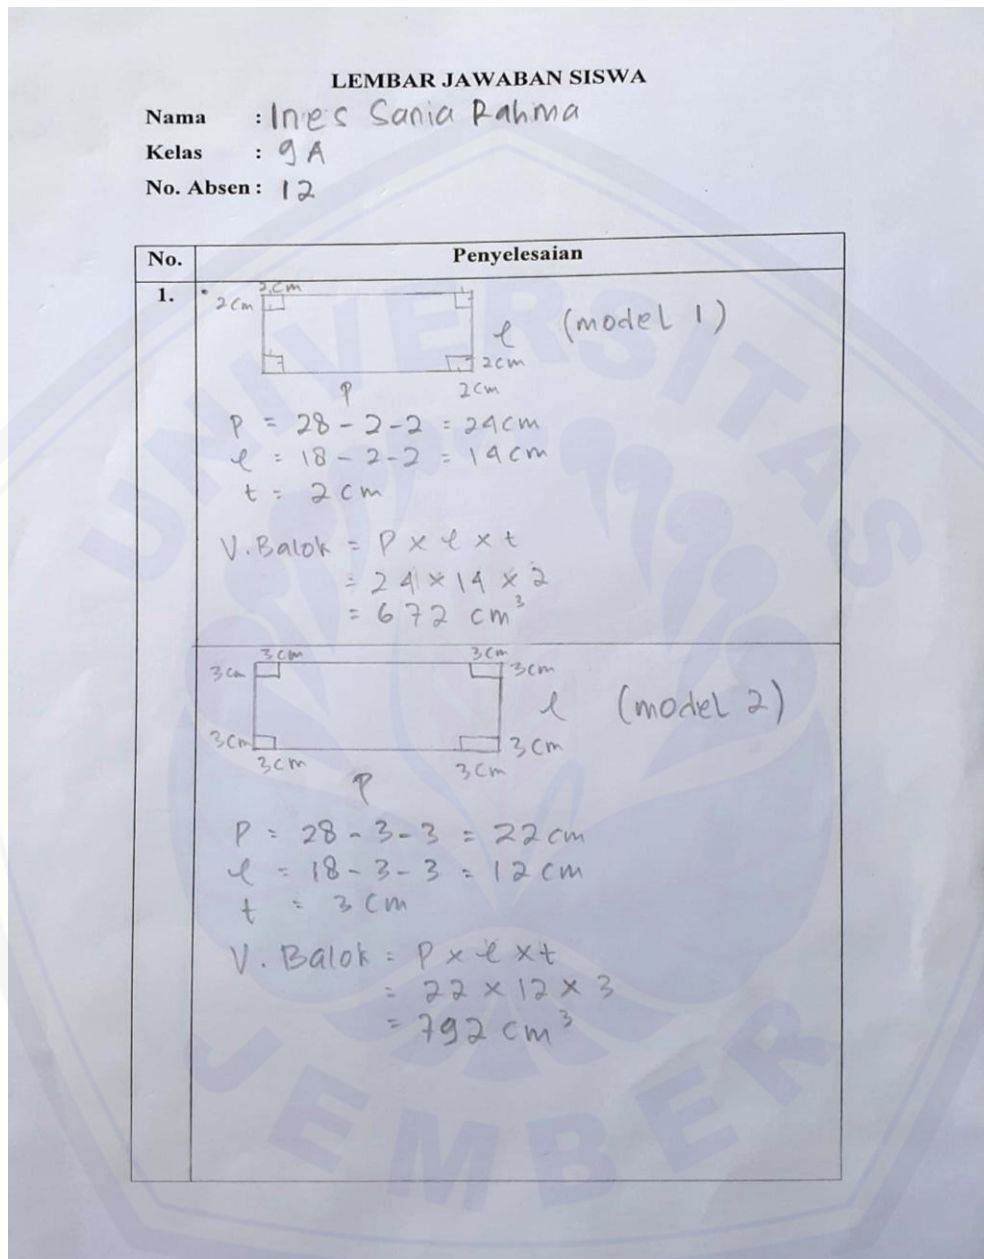 LEMBAR JAWABAN SISWA
Nama : Ines Sania Rahma
Kelas : 9A
No. Absen : 12
No. Penyelesaian
1.
2cm
2cm
l (model 1)
2cm
p 2cm
P = 28 - 2 - 2 = 24 cm
l = 18 - 2 - 2 = 14 cm
t = 2 cm
V. Balok = P x l x t
= 24 x 14 x 2
= 672 cm³
3cm 3cm
3cm 3cm
l (model 2)
3cm 3cm
3cm 3cm
P
P = 28 - 3 - 3 = 22 cm
l = 18 - 3 - 3 = 12 cm
t = 3 cm
V. Balok = P x l x t
= 22 x 12 x 3
= 792 cm³
UNIVERSITAS
JEMBER